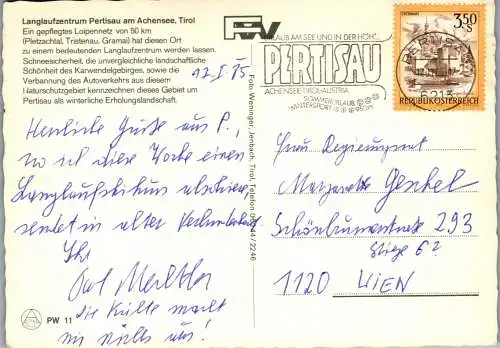 Langlaufzentrum Pertisau am Achensee, Tirol
Ein gepflegtes Loipennetz von 50 km
(Pletzachtal, Tristenau, Gramai) hat diesen Ort
zu einem bedeutenden Langlaufzentrum werden lassen.
Schneesicherheit, die unvergleichliche landschaftliche
Schönheit des Karwendelgebirges, sowie die
Verbannung des Autoverkehrs aus diesem
Naturschutzgebiet kennzeichnen dieses Gebiet um
Pertisau als winterliche Erholungslandschaft.
12. I. 85
Herzliche Grüße aus P.,
wo ich diese Woche einen
Langlaufskikurs absolviere
sendet in alter Verbundenheit
Ihr
die Kälte macht
mir nichts aus!
PW 11
Foto Wernigen, Jenbach, Tirol, Telefon 05244/2246
URLAUB AM SEE UND IN DER HÖH'...
PERTISAU
ACHENSEE-TIROL-AUSTRIA
SOMMERURLAUB
WINTERSPORT 950m
3.50
S
REPUBLIK ÖSTERREICH
6213
Frau Regierungsrat
Margarethe Henkel
Schönbrunnerstraße 293
Stiege 6
1120 WIEN